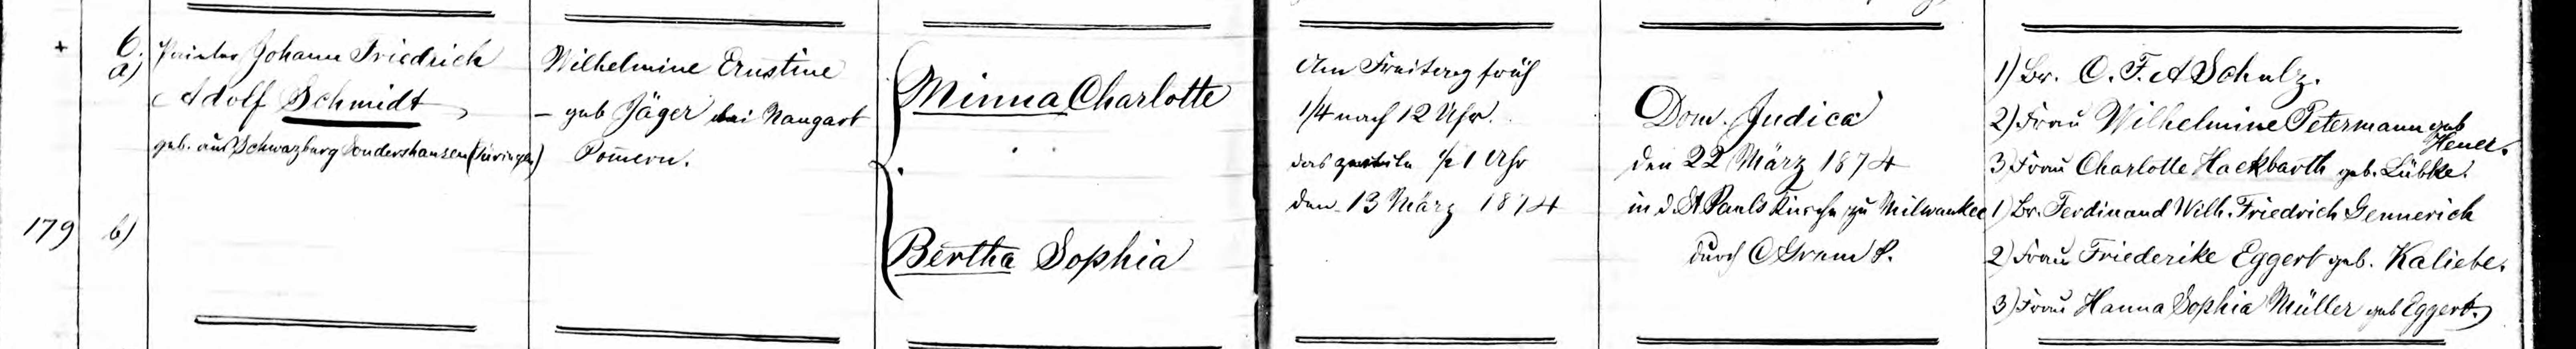 +
6.
a)
Painter Johann Friedrich
Adolf Schmidt
geb. aus Schwazburg Sondershausen (Türingen)
179
b)
Wilhelmine Ernstine
– geb Jäger bei Naugart
Pom̄ern.
Minna Charlotte
Bertha Sophia
Am Freitag früh
1/4 nach 12 Uhr.
das zweite 1/2 1 Uhr
den 13 März 1874
Dom. Judica
den 22 März 1874
in d. St Pauls Kirche zu Milwaukee
durch
1) Br. C. F. A Schulz.
2) Frau Wilhelmine Petermann geb
3) Frau Charlotte Hackbarth geb. Lübke.
1) Br. Ferdinand Wilh. Friedrich Gennerich
2) Frau Friederike Eggert geb. Kaliebe.
3) Frau Hanna Sophia Müller geb Eggert.